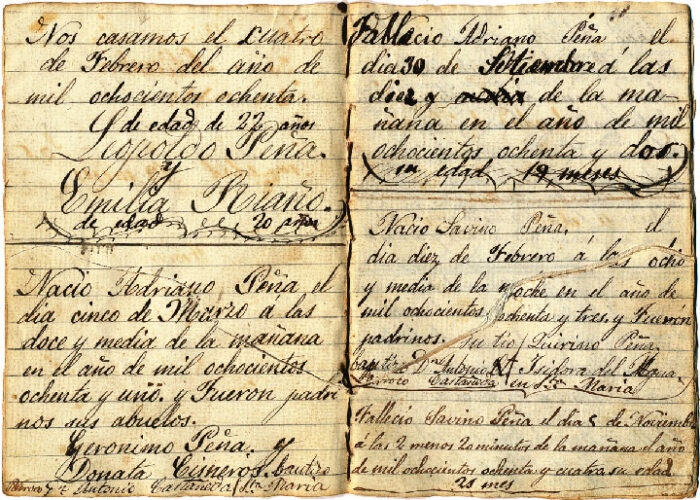 Nos casamos el cuatro
de Febrero del año de
mil ochocientos ochenta.
de edad de 22 años
Leopoldo Peña.
y
Emilia Riaño.
de edad 20 años
Nacio Adriano Peña el
dia cinco de Marzo á las
doce y media de la mañana
en el año de mil ochocientos
ochenta y uno. y Fueron padri
nos sus abuelos.
Geronimo Peña. y
Donata Cisneros. bautizo
Antonio Castañeda / Sta Maria
Fallecio Adriano Peña el
dia 30 de Setiembre á las
diez y media de la ma-
ñana en el año de mil
ochocientos ochenta y dos.
su edad 19 meses
Nacio Savino Peña. el
dia diez de Febrero á las ocho
y media de la noche en el año de
mil ochocientos ochenta y tres y Fueron
padrinos. Su tio Quirino Peña.
bautizo Dn Antonio Isidora del
Parroco Castañeda en Sta Maria
Fallecio Savino Peña el dia 5 de Noviembre
á las 2 menos 20 minutos de la mañana el año
de mil ochocientos ochenta y cuatro su edad
21 mes